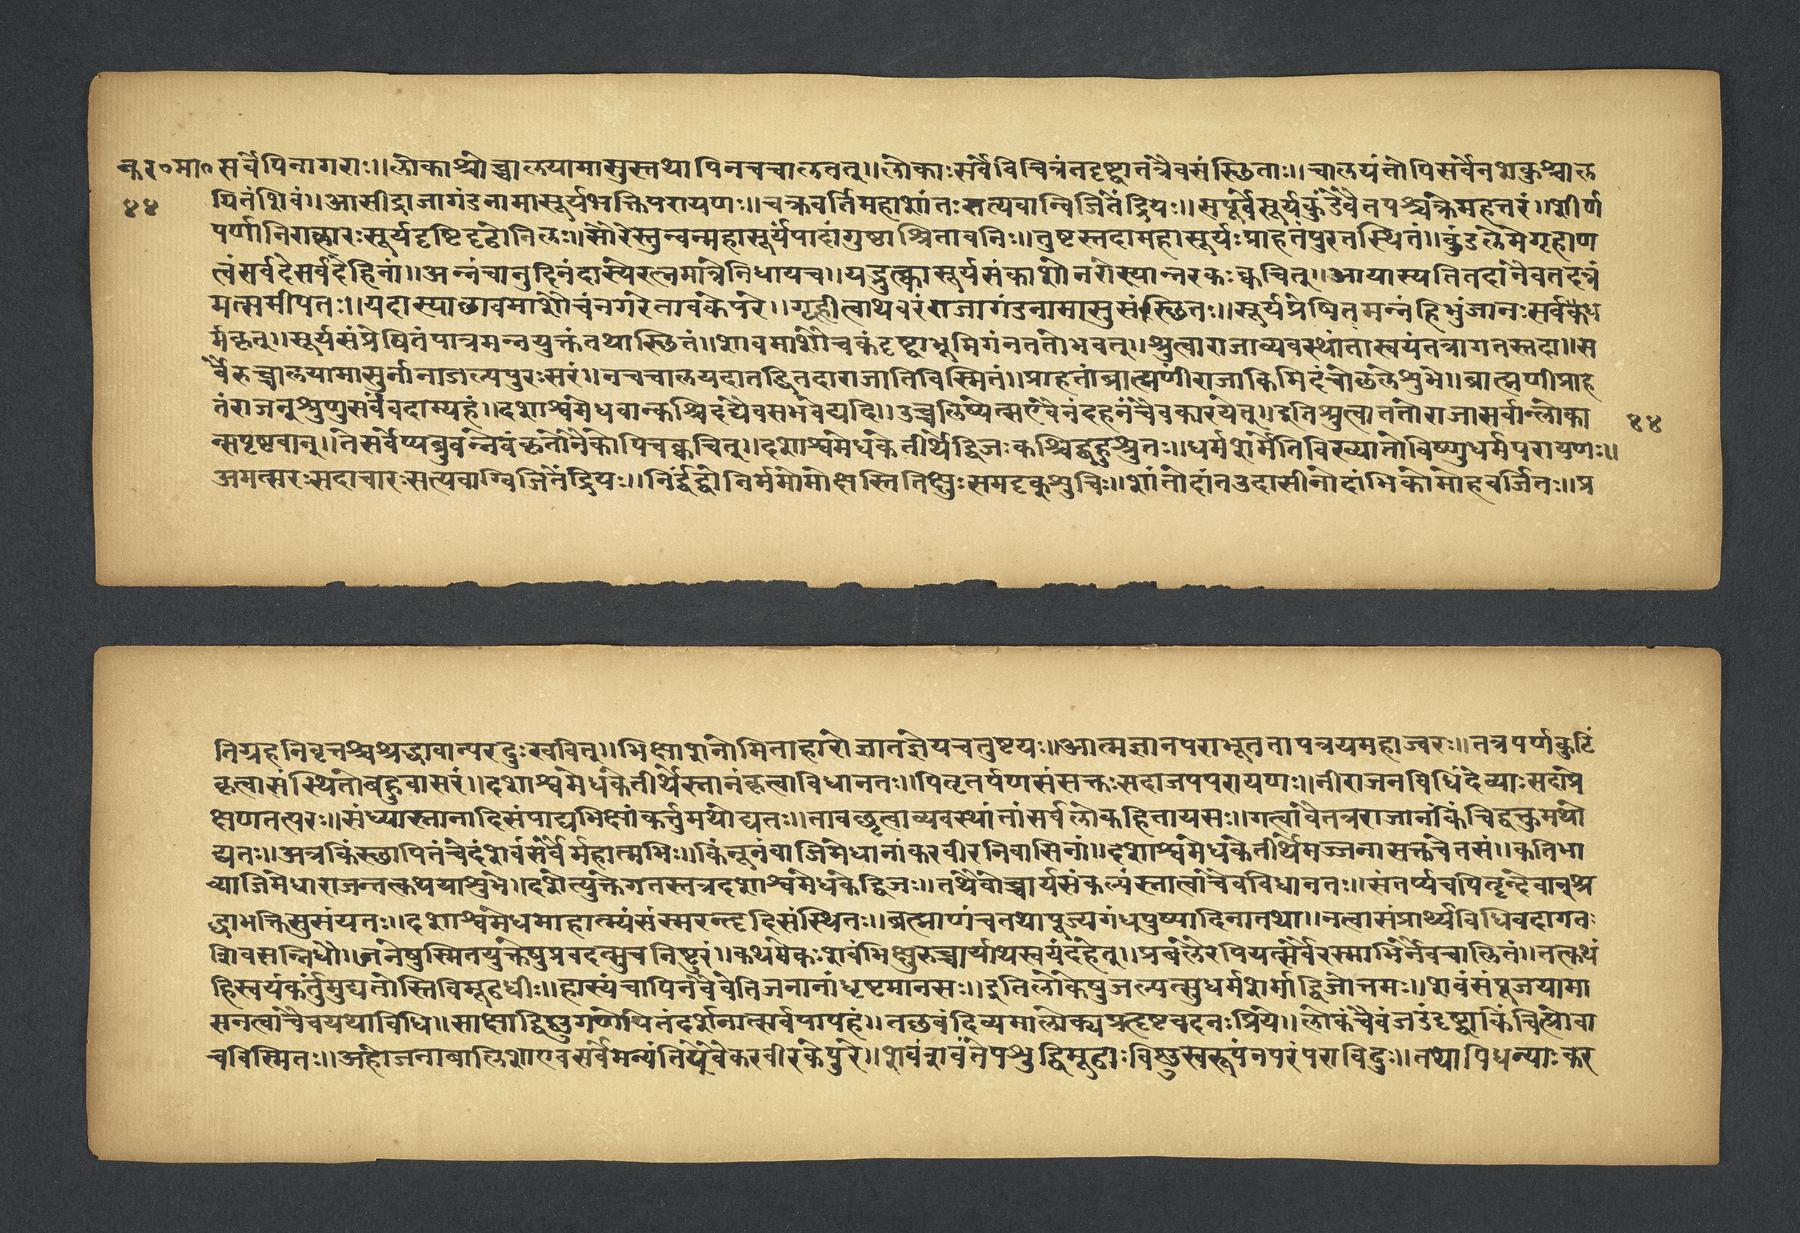 कर०मा० सर्वेपिनागराः॥लोकाश्चोच्चालयामासुस्तथापिनचचालतत्॥लोकाःसर्वेविचित्रंतदृष्ट्वातत्रैवसंस्छिताः॥चालयंतोपिसर्वेनशेकुश्चाल
४४ यितंशिवं॥आसीद्राजागंडनामासूर्यभक्तिपरायणः॥चक्रवर्तिमहाशांतःसत्यवान्विजितेंद्रियः॥सपूर्वेसूर्यकुंडेवैतपश्चक्रेमहत्तरं॥शीर्ण
पर्णानिराह्वारःसूर्यदृष्टिदृढोनिलः॥सौरेस्तुन्वन्महासूर्यपादांगुष्ठाश्रितावनिः॥तुष्टस्तदामहासूर्यःप्राहतंपुरतस्थितं॥कुंडलेमेगृहाण
त्वंसर्वदेसर्वदेहिनां॥अन्नंचानुदिनंदास्येरत्नमात्रेनिधायच॥यद्भुत्क्वासूर्यसंकाशोनरोस्यान्नरकःक्वचित्॥आयास्यतितदांनैवतदन्नं
मत्समीपतः॥यदास्याछावमाशौचंनगरेतावकेपरे॥गृहीत्वाथवरंराजागंडनामासुसंस्छितः॥सूर्यप्रेषितमन्नंहिभुंजानःसर्वकध
र्मकृत्॥सूर्यसंप्रेषितंपात्रमन्नयुक्तंतथास्छितं॥शावमाशौचकंदृष्ट्वाभूमिगंनततोभवत्॥श्रुत्वाराजाव्यवस्थांतास्वयंतत्रागतस्तदा॥स
र्वैरुच्चालयामासुर्नानाजल्पपुरःसरं॥नचचालयदातछितदाराजातिविस्मितं॥प्राहतांब्राह्मणींराजाकिमिदंचोलतेश्रुभे॥ब्राह्मणीप्राहे
तंराजन्श्रुणुसर्वंवदाम्यहं॥दशाश्वमेधवान्कश्चिदद्यैवसभवेद्यदि॥उच्चलिष्येत्सएवैनंदहनंचैवकारयेत्॥इतिश्रुत्वाततोराजासर्वान्लोका ४४
न्सपृष्टवान्॥तेसर्वेप्यब्रुवन्नैवंकृतोनैकोपिचक्वचित्॥दशाश्वमेधकेतीर्थेद्विजःकश्चिद्बहुश्रुतः॥धर्मशर्मेतिविख्यातोविष्णुधर्मपरायणः॥
अमत्सरःसदाचारःसत्यवाग्विजितेंद्रियः॥निर्द्वंद्वोनिर्ममोमोक्षस्तितिक्षुःसमदृक्शुचिः॥शांतोदांतउदासीनोदांभिकोमोहवर्जितः॥प्र
तिग्रहनिवृत्तश्चश्रद्धावान्परदुःखवित्॥भिक्षाशनोमिताहारोज्ञातज्ञेयचतुष्टयः॥आत्मज्ञानपराभूततापत्रयमहाज्वरः॥तत्रपर्णकुटिं
कृत्वासंस्थितोबहुवासरं॥दशाश्वमेधकेतीर्थेस्नानंकृत्वाविधानतः॥पितृतर्पणसंसक्तःसदाजपपरायणः॥नीराजनविधिंदेव्याःसदाप्रे
क्षणतत्परः॥संध्यास्नानादिसंपाद्यभिक्षांकर्त्तुमथोद्यतः॥तावछ्रुत्वाव्यवस्थांतांसर्वलोकहितायसः॥गत्वांवैतत्रराजानंकिंचिद्वक्तुमथो
द्यतः॥अत्रकिंस्छापितंचेदंशवंसर्वैर्महात्मभिः॥किंनूनंवाजिमेधानांकरवीरनिवासिनां॥दशाश्वमेधकेतीर्थेमज्जनासक्तचेतसं॥कतिभा
व्याजिमेधाराजन्तत्कथयाश्रुमे॥दशेत्युक्तेगतस्तत्रदशाश्वमेधकेद्विजः॥तथैवोच्चार्यसंकल्पंस्नात्वांचैवविधानतः॥संतर्प्यचपितृन्देवान्श्र
द्धाभक्तिसुसंयतः॥दशाश्वमेधमाहात्म्यंसंस्मरन्हृदिसंस्थितः॥ब्रह्माणंचतथापूज्यगंधपुष्पादिनातथा॥नत्वासंप्रार्थ्यविधिवदागतः
शिवसन्निधौ॥जनेषुस्मितयुक्तेषुप्रवदत्सुचनिष्टुरं॥कथमेकःशवंभिक्षुरुच्चार्याथस्वयंदहेत्॥प्रबलैरपियत्सर्वैरस्माभिर्नैवचालितं॥तत्कथं
हिस्वयंकर्तुमुद्यतोस्तिविमूढधीः॥हास्यंचापिनवैवेतिजनानांधृष्टमानसः॥इतिलोकेषुजल्पत्सुधर्मशर्माद्विजोत्तमः॥शवंसंपूजयामा
सनत्वांचैवयथाविधि॥साक्षाद्विष्णुगणोपितंदर्शनात्सर्वपापहं॥तछवंदिव्यमालोक्यप्रहृष्टवदनःप्रिये॥लोकंचैवंजडंदृष्ट्वाकिंचित्प्रोवा
चविस्मितः॥अहोजनाबालिशाएवसर्वेमन्यंतियेवैकरवीरकेपुरे॥शवंशवंतेपश्रुद्विमूढाःविष्णुस्वरूपंनपरंपराविदुः॥तथापिधन्याःकर